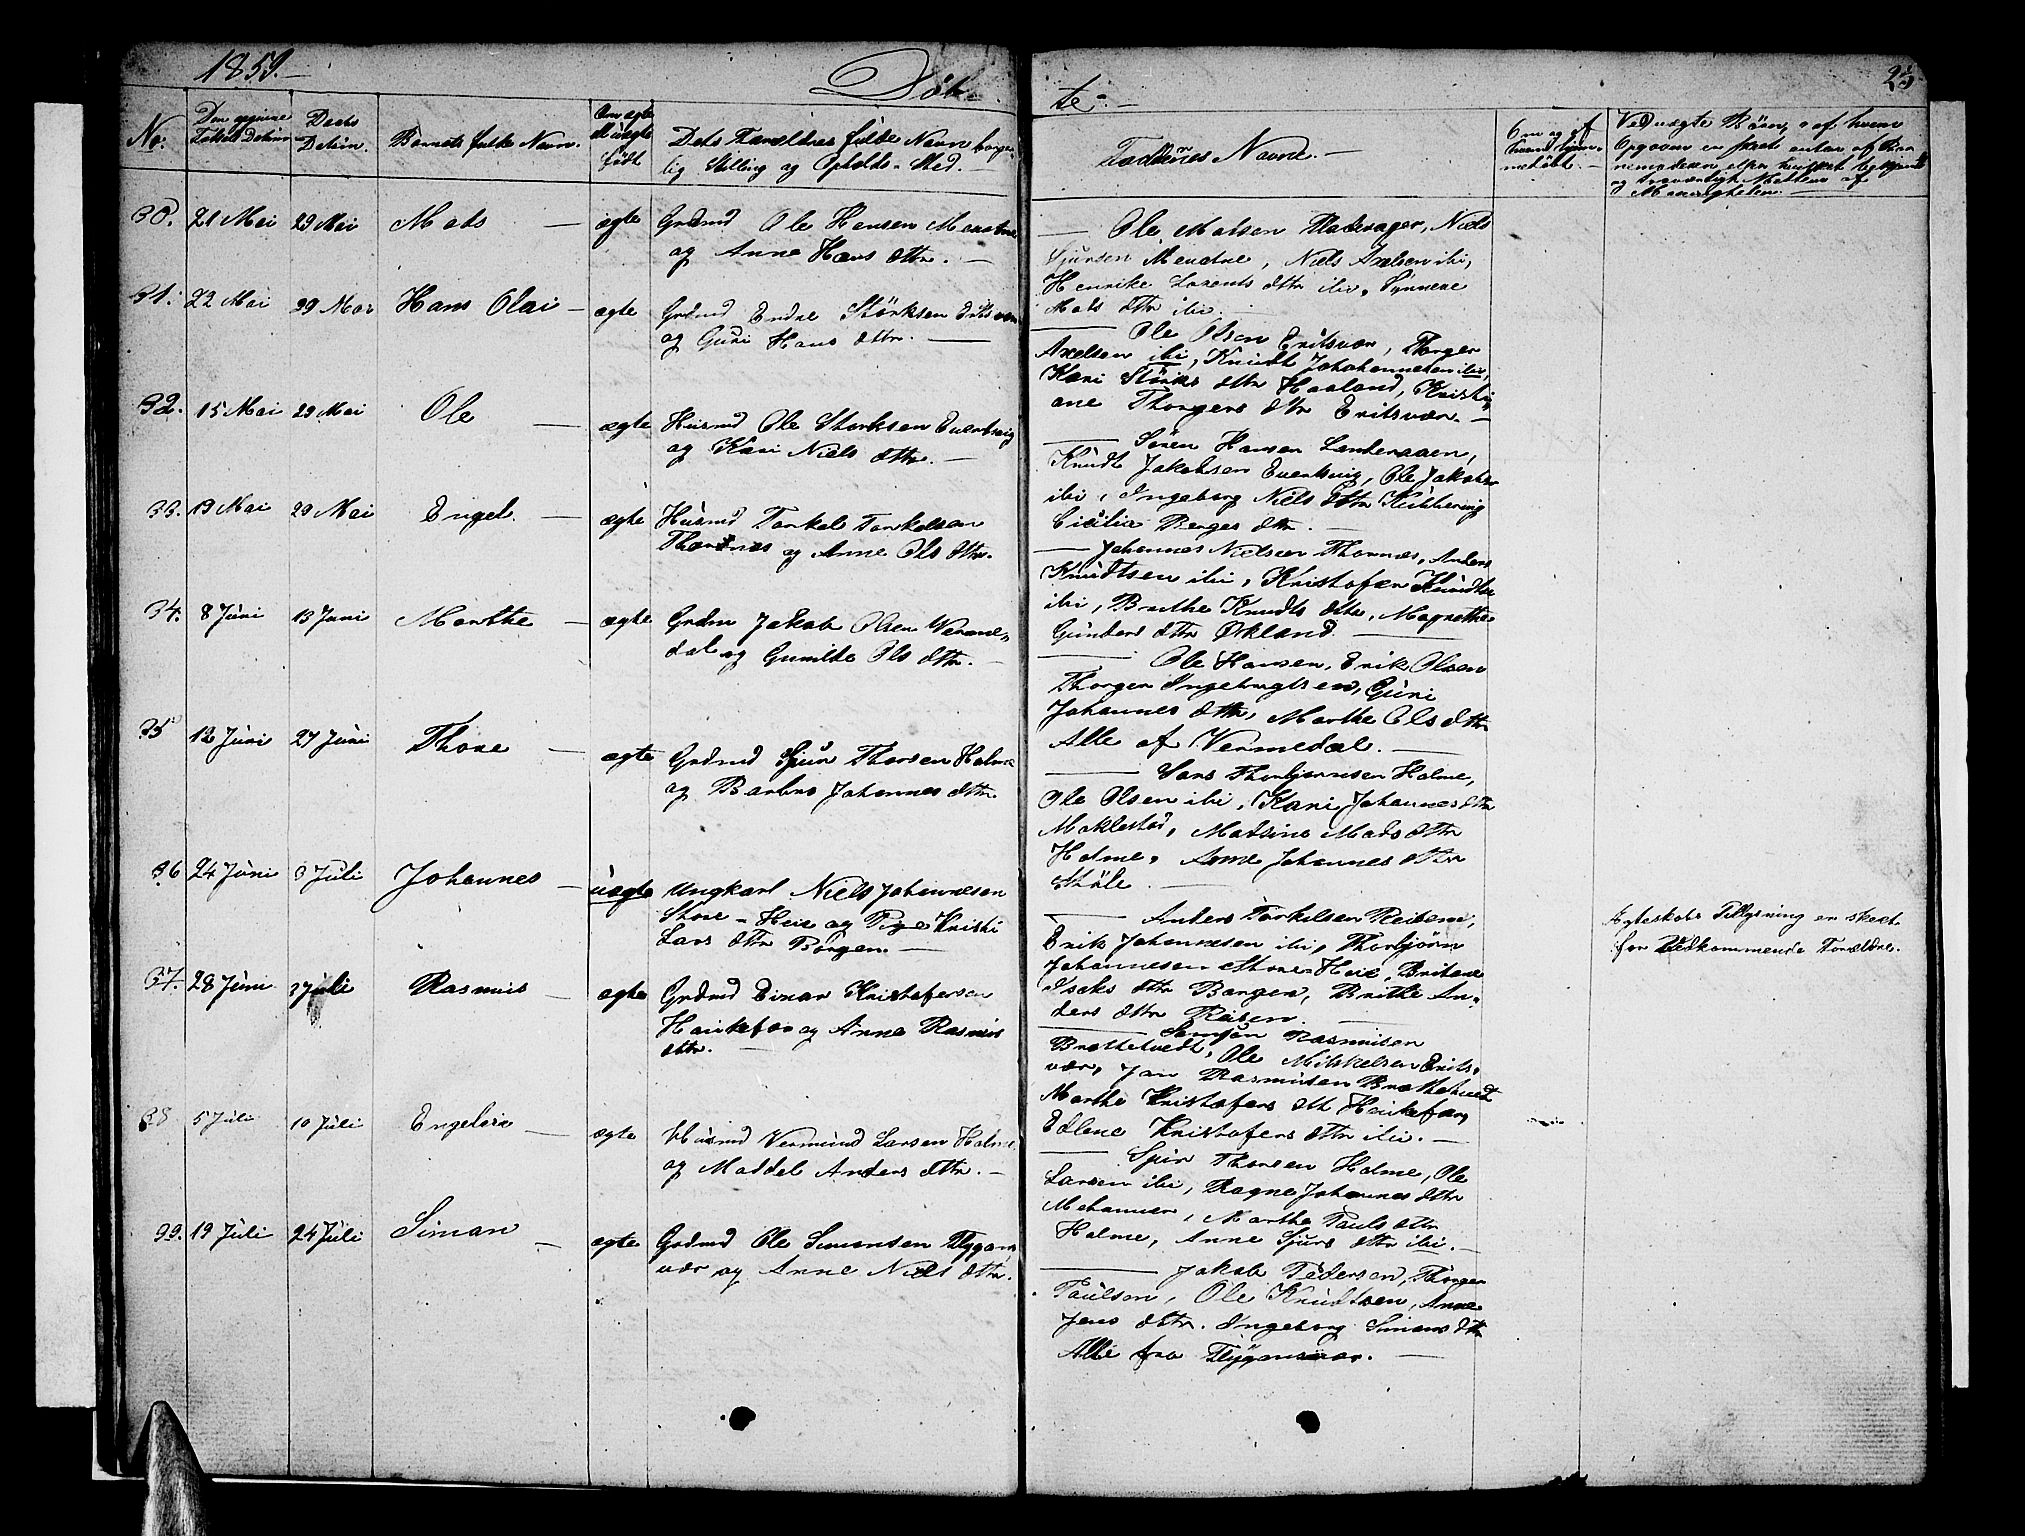 1859.
Døb
te.
25
No.
Den opgivne
Fødsels Datum
Daabs
Datum.
Barnets fulde Navn.
Om ægte
el. uægte
født
Dets Forældres fulde Navn borger-
lig Stilling og Opholds-Sted.
Faddernes Navne.
Om og af
hvem hjem-
medøbt.
Ved uægte Børn,
30. 21 Mai 29 Mai Mads ægte Grdmd Ole Hansen
og Anne Hans dttr.
Ole Matsen Niels
Sjursen Niels Axelsen ibi,
Henrike Larents dttr ibi, Synneve
Mads dttr ibi.
31. 22 Mai 29 Mai Hans Olai ægte Grdmd Endre Størksen Eritsvær
og Guri Hans dttr.
Ole Olsen Eritsvær, Thorger
Axelsen ibi, Knudt Johannesen ibi,
Kari Størks dttr Haaland, Kristi-
ane Thorgers dttr Eritsvær.
32. 15 Mai 29 Mai Ole ægte Husmd Ole Storksen
og Kari Niels dttr.
Søren Hansen
Knudt Jakobsen Ole Jakobsen
ibi, Ingeborg Niels dttr
Cicilia Berges dttr.
33. 19 Mai 29 Mai Engel. ægte Husmd Torkel Torkelsen
Thornes og Anne Ols dttr.
Johannes Nielsen Thornæs, Anders
Knudtsen ibi, Kristofer Knudts
ibi, Brithe Knudts dttr, Magnethe
Gunders dttr Økland.
34. 8 Juni 13 Juni Marthe ægte Grdm Jakob Olsen Verme-
dal og Gunilde Ols dttr.
Ole Hansen, Erik Olsen
Thorger Ingebrigtsen, Guri
Johannes dttr, Marthe Ols dttr
Alle af Vermedal.
35 12 Juni 27 Juni Thore ægte Grdmd Sjur Thorsen Holme
og Barbro Johannes dttr.
Lars Thorbjørnsen Holme,
Ole Olsen ibi, Kari Johannes dttr
Møklestad, Madsine Mads dttr
Holme, Anne Johannes dttr
Støle.
36 24 Juni 3 Juli Johannes uægte Ungkarl Niels Johannesen
Store-Heie og Pige Kristi
Lars dttr Børgen.
Anders Torkelsen
Erik Johannesen ibi, Thorbjørn
Johannesen Store-Heie,
Isaks dttr Børgen, Brithe An-
ders dttr Reisen.
Ægteskabs Tillysning er skeet
for Vedkommende Forældre.
37. 28 Juni 3 Juli Rasmus ægte Grdmd Einar Kristofersen
og Anne Rasmus
dttr.
Samson Rasmusen
Brattetvedt, Ole Mikkelsen Erits-
vær, Jan Rasmusen Brattetvedt
Marthe Kristofers dtt
Edlene Kristofers dttr ibi.
38 5 Juli 10 Juli ægte Husmd Vermund Larsen Holme,
og Maddel Anders dttr.
Sjur Thorsen Holme, Ole
Larsen ibi, Ragne Johannes dttr
Marthe Pauls dttr
Holme, Anne Sjurs dttr ibi.
39. 19 Juli 24 Juli Siman ægte Grdmd Ole Simonsen Flygans-
vær og Anne Niels dttr.
Jakob Pedersen, Thorger
Paulsen, Ole Knudtsen, Anne
Jens dttr. Ingeborg Simens dttr
Alle fra Flygansvær.